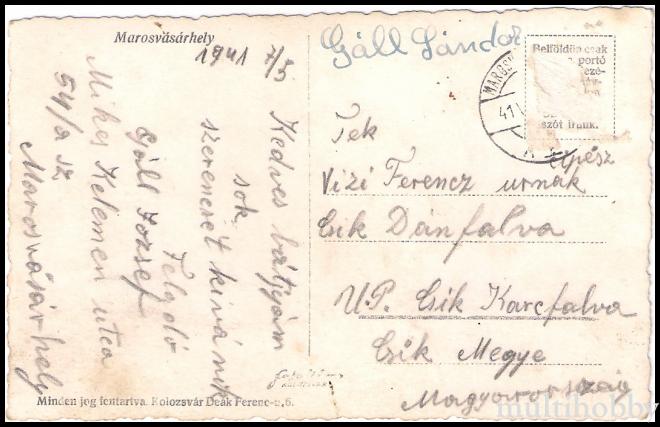 Marosvásárhely
1941 7/5
Kedves bátyám
sok
szerencsét kivánok
Feladó
Gáll József
Mikes Kelemen utca
54/a sz
Marosvásárhely
Gáll Sándor
Belföldön csak
portó
szót írunk.
MAROS
41
Tek
Vizi Ferencz urnak
cipész
Csik Dánfalva
U.P. Csik Karcfalva
Csik Megye
Magyarország
Minden jog fentartva. Kolozsvár Deák Ferenc-u. 6.
multihobby